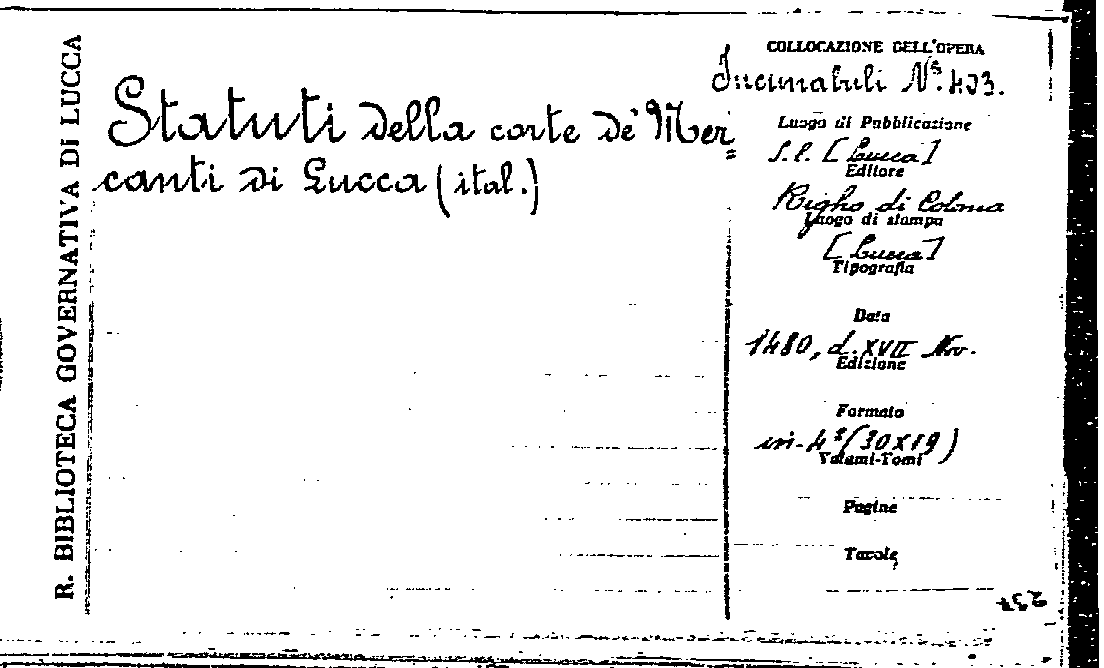 R. BIBLIOTECA GOVERNATIVA DI LUCCA
Statuti della corte de' Mer=
canti di Lucca (ital.)
COLLOCAZIONE DELL'OPERA
Incunabuli Nº. 403.
Luogo di Pubblicazione
S. l. [Lucca]
Editore
Righo di Colonia
Luogo di stampa
[Lucca]
Tipografia
Data
1480, d. XVII Nov.
Edizione
Formato
in-4º (30X19)
Volumi-Tomi
Pagine
Tavole
237